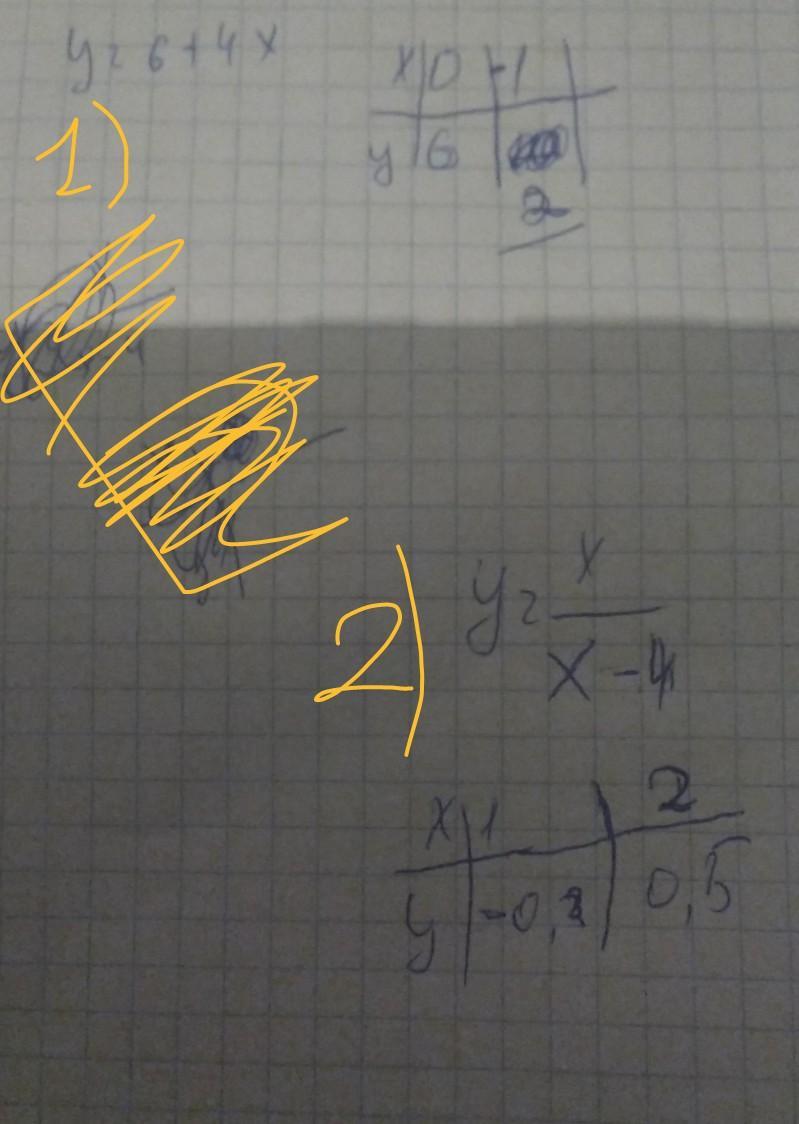 y = 6 + 4x
x 0 -1
y 6
2
1)
2)
y = x
x - 4
x 1 2
y -0,3 0,5